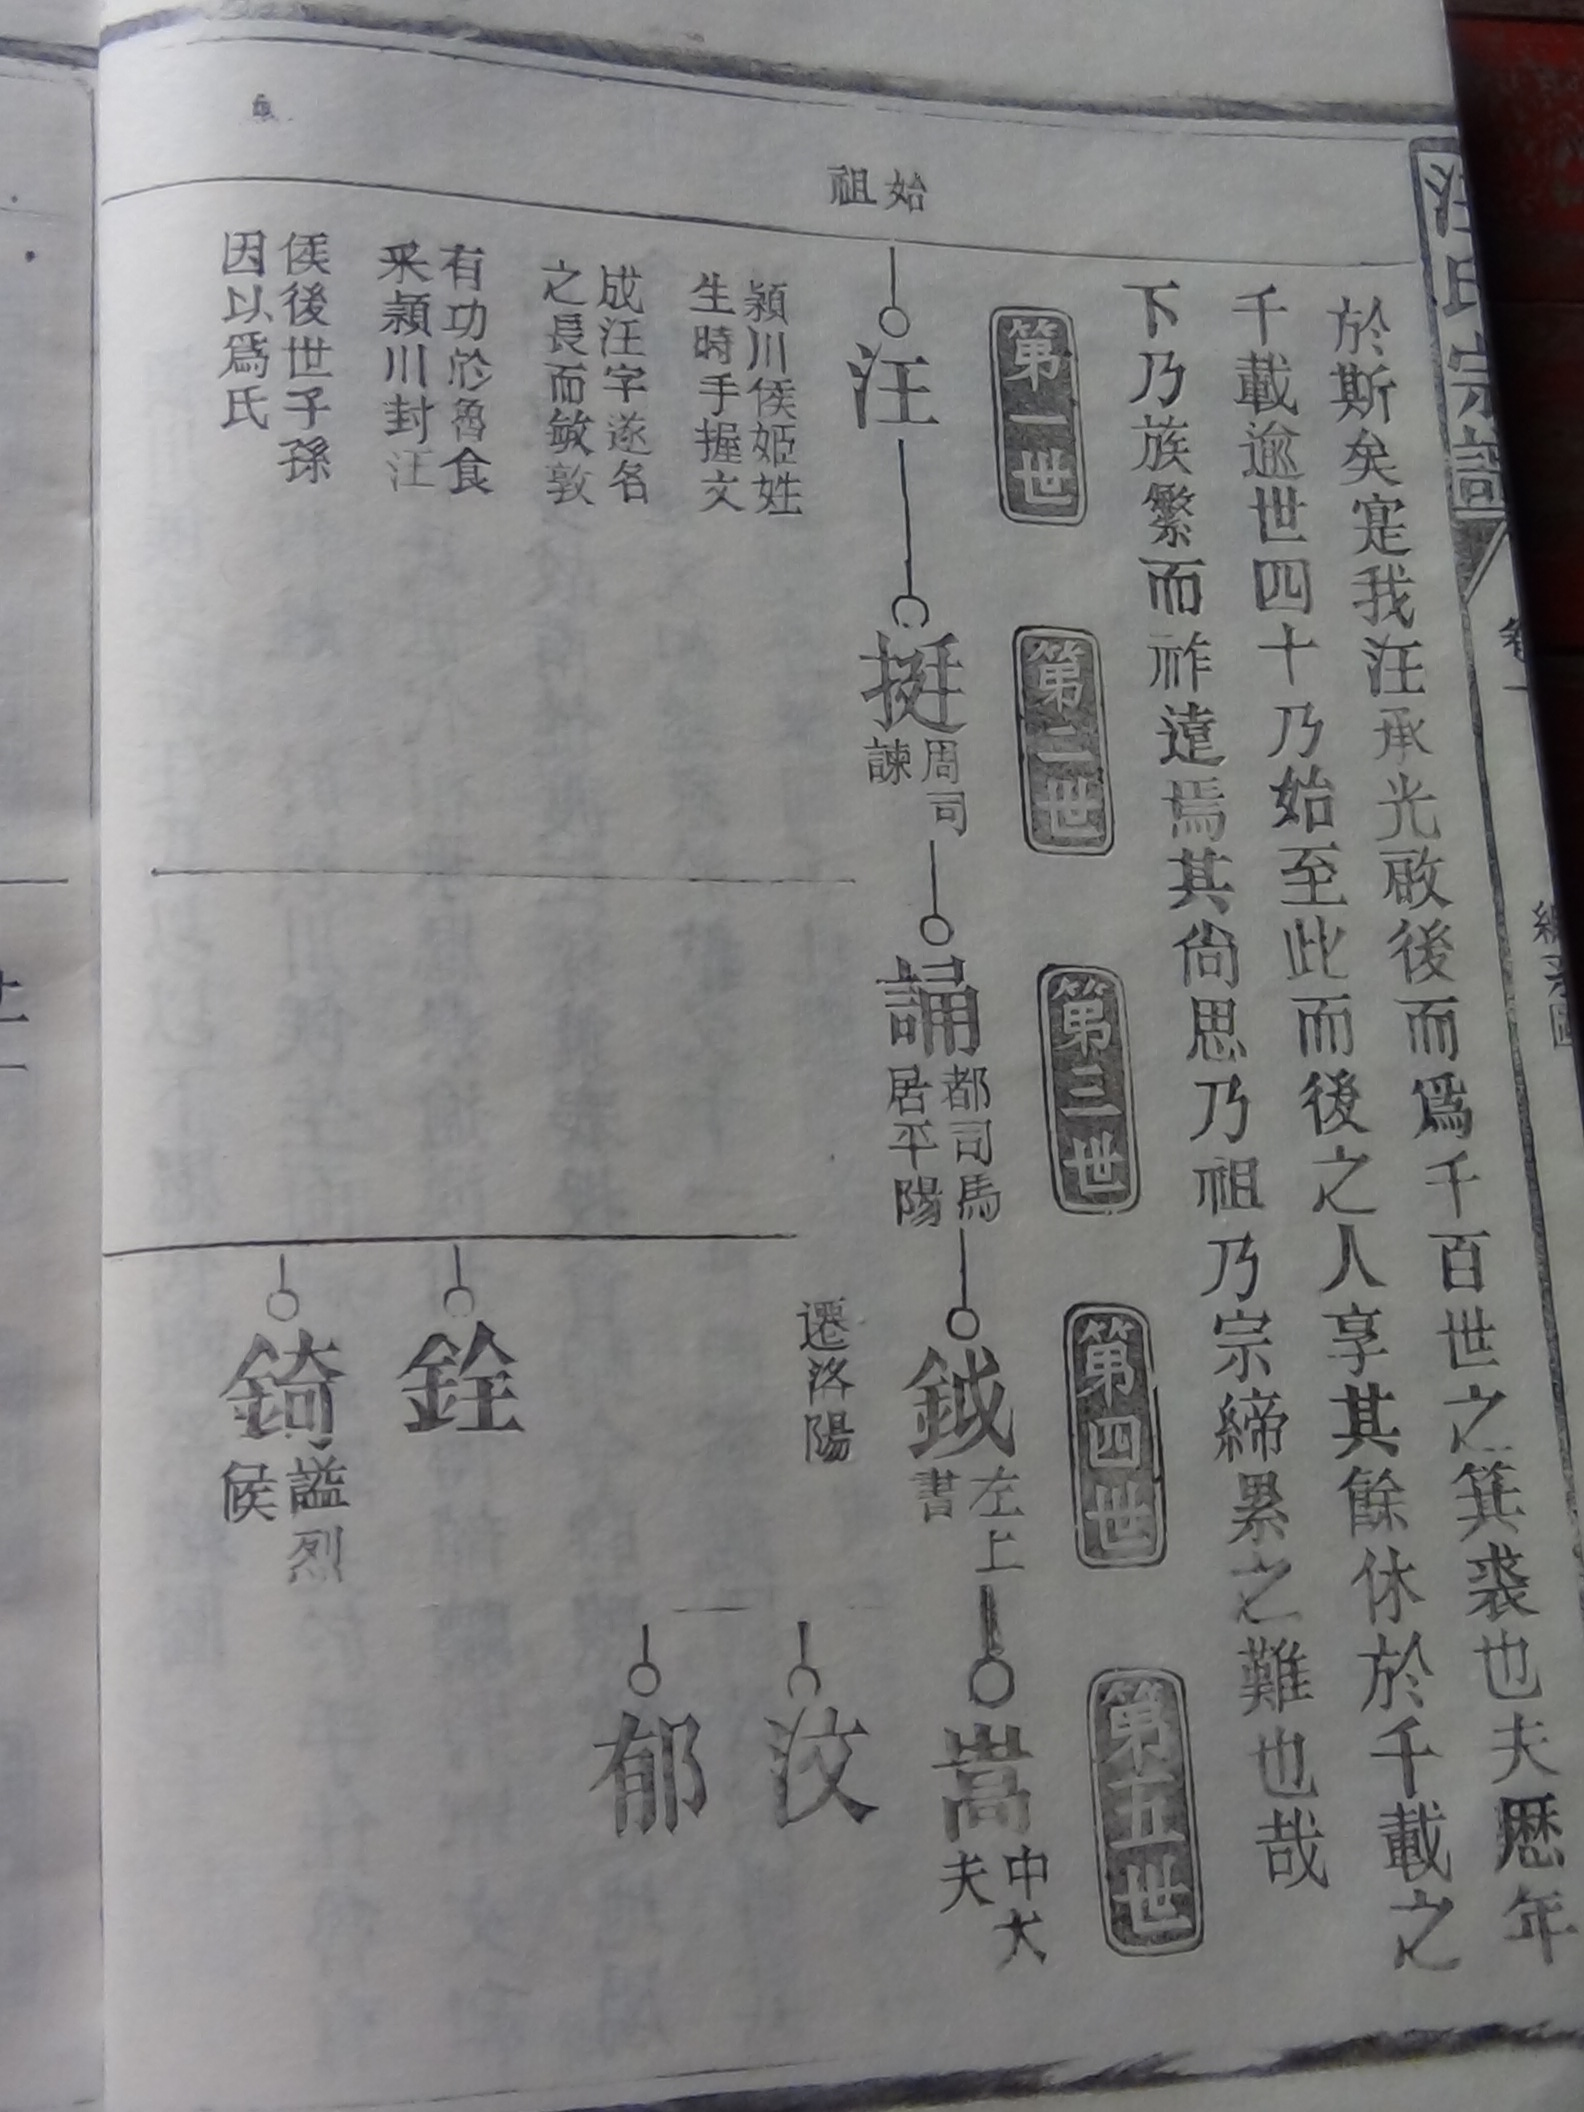 汪氏宗譜
卷一
總系圖
於斯矣寔我汪承光啟後而爲千百世之箕裘也夫歷年
千載逾世四十乃始至此而後之人享其餘休於千載之
下乃族繁而祚遠焉其尙思乃祖乃宗締累之難也哉
第一世
第二世
第三世
第四世
第五世
始祖
汪
挺
周司
諫
誦
都司馬
居平陽
鉞
左上
書
嵩
中大
夫
潁川侯姬姓
生時手握文
成汪字遂名
之長而敏敦
有功於魯食
采潁川封汪
侯後世子孫
因以爲氏
遷洛陽
汶
郁
銓
錡
謚烈
侯